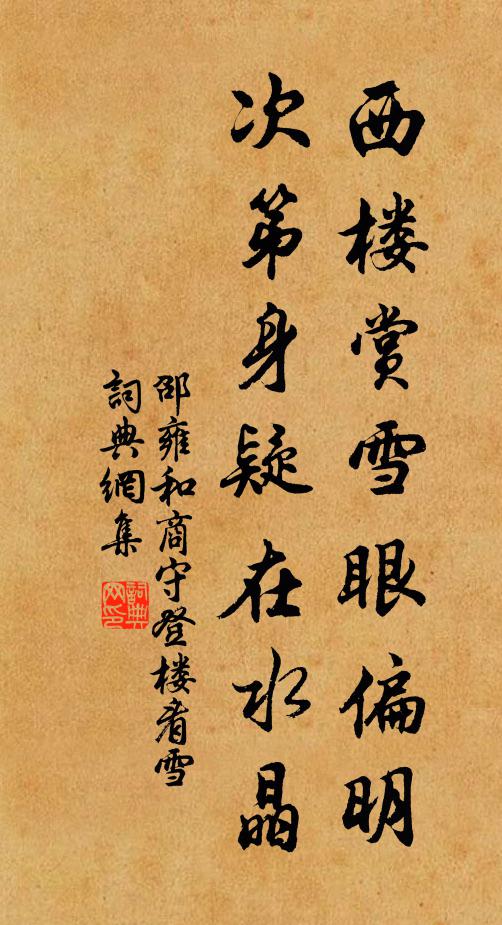 西楼赏雪眼偏明
次第身疑在水晶
邵雍和商守登楼看雪
词典網集
詞典網印